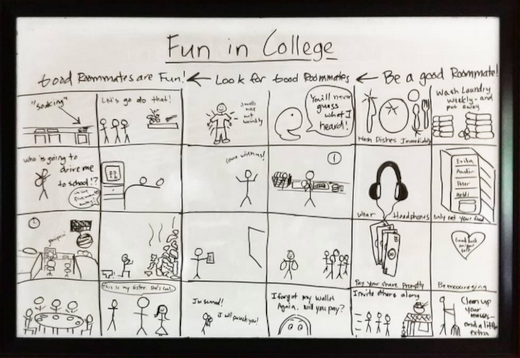 Fun in College
Good Roommates are Fun! ← Look for Good Roommates ← Be a good Roommate!
"soaking"
Let's go do that!
You'll never
guess
what I
heard!
Wash Dishes Immediately
Wash Laundry
weekly - and
put away
who is going to
drive me
to school!?
Wear Headphones
Only eat your food
Pay your share promptly
Be encouraging
This is my sister. She's cool.
I'm scared!
I will protect you!
I forgot my wallet
Again, will you pay?
Invite others along
Clean up
your
messes-
and a little
extra